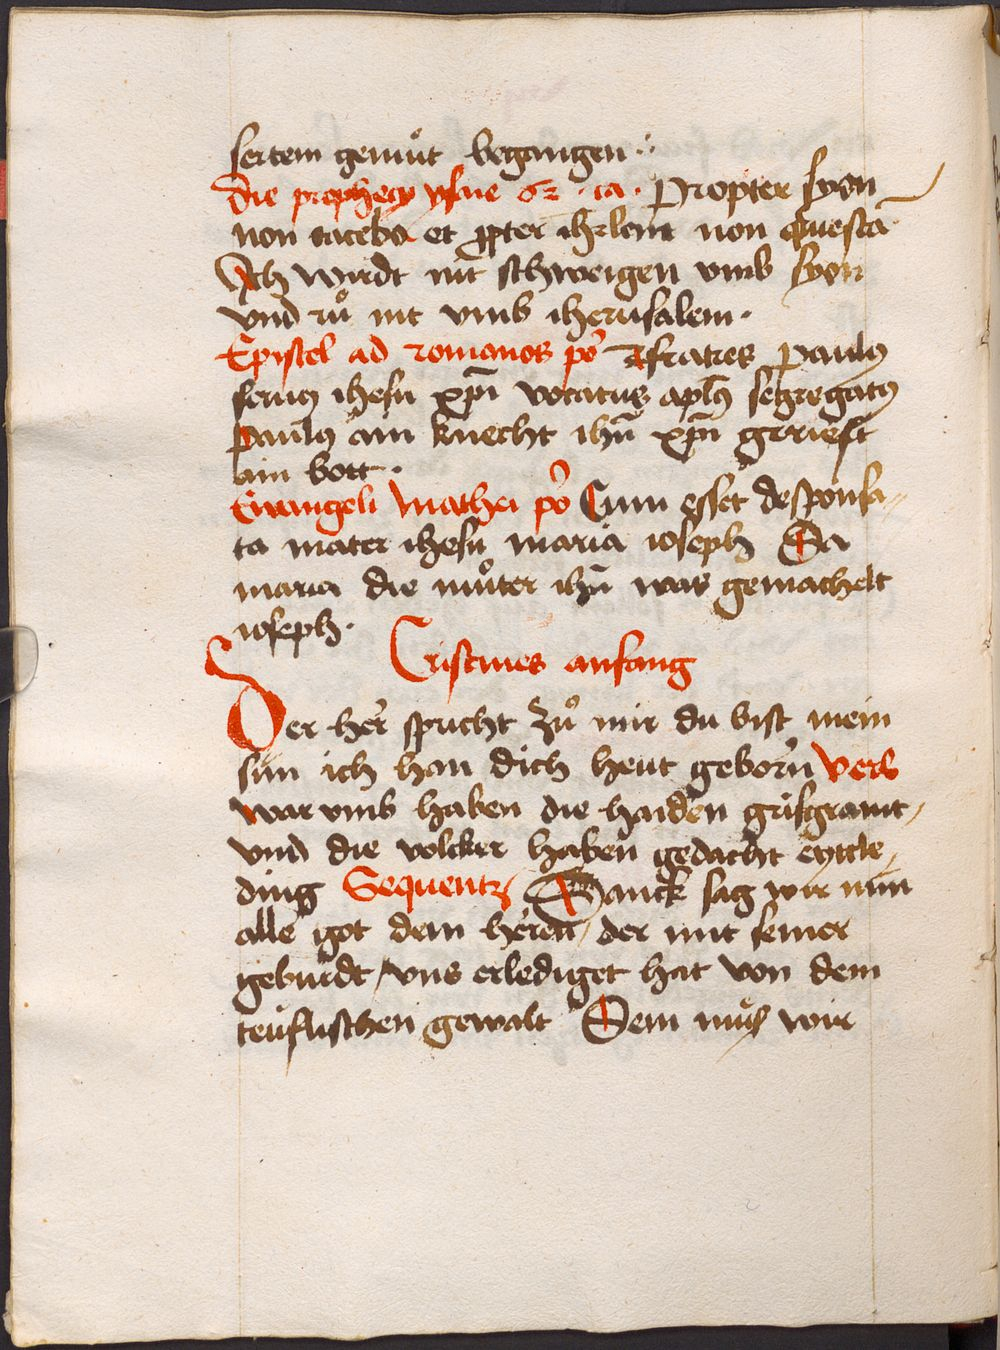 sertem gemuͦt begangen ·:
die prophecy ysaie 62 · ca · Propter syon
non tacebo et ꝓpter ihrlem non quiescā
Ich wirdt nit schweigen vmb syon
vnd ruͦ nit vmb iherusalem ·
Epistel ad romanos po Fratres Paulus
seruus ihesu xp̄i vocatus apl̄s segregatus
Paulus ain knecht ihū xp̄i gerieft
ain bott ·
Ewangeli Mathei po Cum esset desponsa
ta mater ihesu maria ioseph Da
maria die muͦter ihū was gemachelt
ioseph ·
Cristmes anfang
Der her spricht zuͦ mir du bist mein
sun ich han dich heut geborn vers
war vmb haben die haiden grisgramt
vnd die volcker haben gedacht eyttle
ding Sequentz Danck sag wir nun
alle got dem heren / der mit seiner
geburdt / vns erlediget hat von dem
teuflischen gewalt Dem muͤs wir